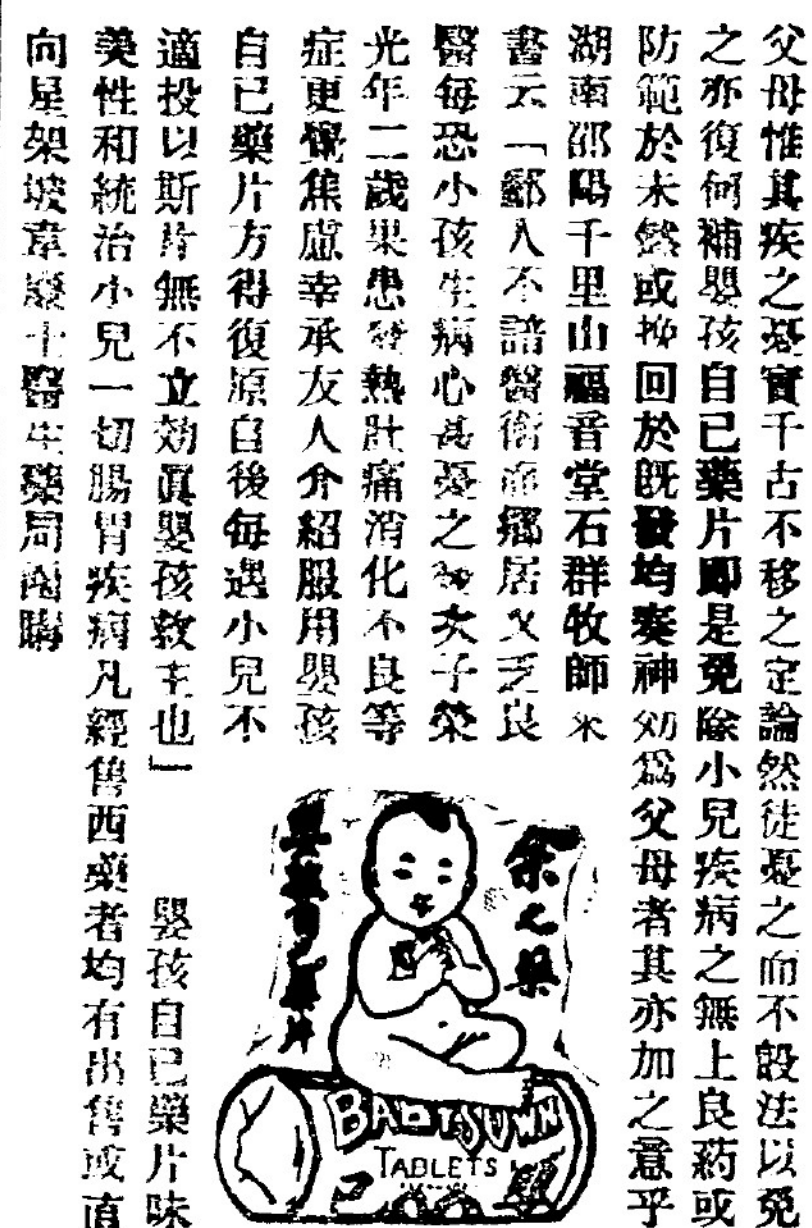 父母惟其疾之憂實千古不移之定論然徒憂之而不設法以免
之亦復何補嬰孩自已藥片即是免除小兒疾病之無上良葯或
防範於未然或挽回於既發均奏神効為父母者其亦加之意乎
湖南邵陽千里山福音堂石群牧師來
書云「鄙人不諳醫術而鄉居又乏良
醫每恐小孩生病心甚憂之次子榮
光年二歲果患發熱肚痛消化不良等
症更覺焦慮幸承友人介紹服用嬰孩
自已藥片方得復原自後每遇小兒不
適投以斯片無不立効眞嬰孩救主也」 嬰孩自已藥片味
美性和統治小兒一切腸胃疾病凡經售西藥者均有出售或直
向星架坡韋廉士醫生藥局函購
余之藥
嬰孩自已藥片
BABY'S OWN
TABLETS